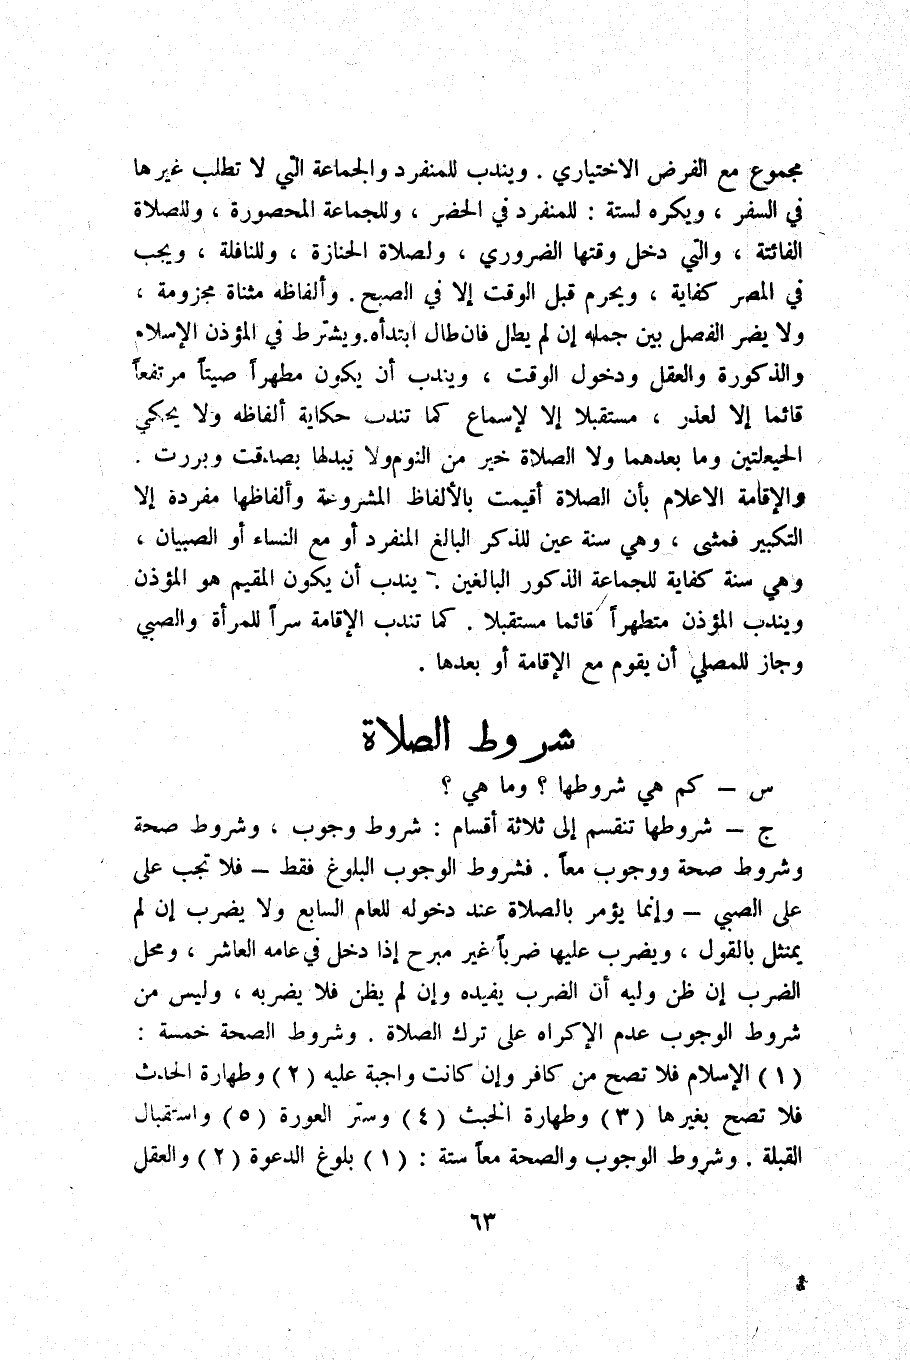 مجموع مع الفرض الاختياري . ويندب للمنفرد والجماعة التي لا تطلب غيرها
في السفر ، ويكره لستة : للمنفرد في الحضر ، وللجماعة المحصورة ، وللصلاة
الفائتة ، والتي دخل وقتها الضروري ، ولصلاة الجنازة ، وللنافلة ، ويجب
في المصر كفاية ، ويحرم قبل الوقت إلا في الصبح . وألفاظه مثناة مجزومة ،
ولا يضر الفصل بين جمله إن لم يطل فان طال ابتدأه.ويشترط في المؤذن الإسلام
والذكورة والعقل ودخول الوقت ، ويندب أن يكون مطهراً صيتاً مرتفعاً
قائما إلا لعذر ، مستقبلا إلا لإسماع كما تندب حكاية ألفاظه ولا يحكي
الحيعلتين وما بعدهما ولا الصلاة خير من النوم ولا يبدلها بصدقت وبررت .
والإقامة الاعلام بأن الصلاة أقيمت بالألفاظ المشروعة وألفاظها مفردة إلا
التكبير فمثنى ، وهي سنة عين للذكر البالغ المنفرد أو مع النساء أو الصبيان ،
وهي سنة كفاية للجماعة الذكور البالغين . يندب أن يكون المقيم هو المؤذن
ويندب المؤذن متطهراً قائما مستقبلا . كما تندب الإقامة سراً للمرأة والصبي
وجاز للمصلي أن يقوم مع الإقامة أو بعدها .
شروط الصلاة
س – كم هي شروطها ؟ وما هي ؟
ج – شروطها تنقسم إلى ثلاثة أقسام : شروط وجوب ، وشروط صحة
وشروط صحة ووجوب معاً . فشروط الوجوب البلوغ فقط – فلا تجب على
على الصبي – وإنما يؤمر بالصلاة عند دخوله للعام السابع ولا يضرب إن لم
يمتثل بالقول ، ويضرب عليها ضرباً غير مبرح إذا دخل في عامه العاشر ، ومحل
الضرب إن ظن وليه أن الضرب يفيده وإن لم يظن فلا يضربه ، وليس من
شروط الوجوب عدم الإكراه على ترك الصلاة . وشروط الصحة خمسة :
(١) الإسلام فلا تصح من كافر وإن كانت واجبة عليه (٢) وطهارة الحدث
فلا تصح بغيرها (٣) وطهارة الخبث (٤) وستر العورة (٥) واستقبال
القبلة . وشروط الوجوب والصحة معاً ستة : (١) بلوغ الدعوة (٢) والعقل
٦٣